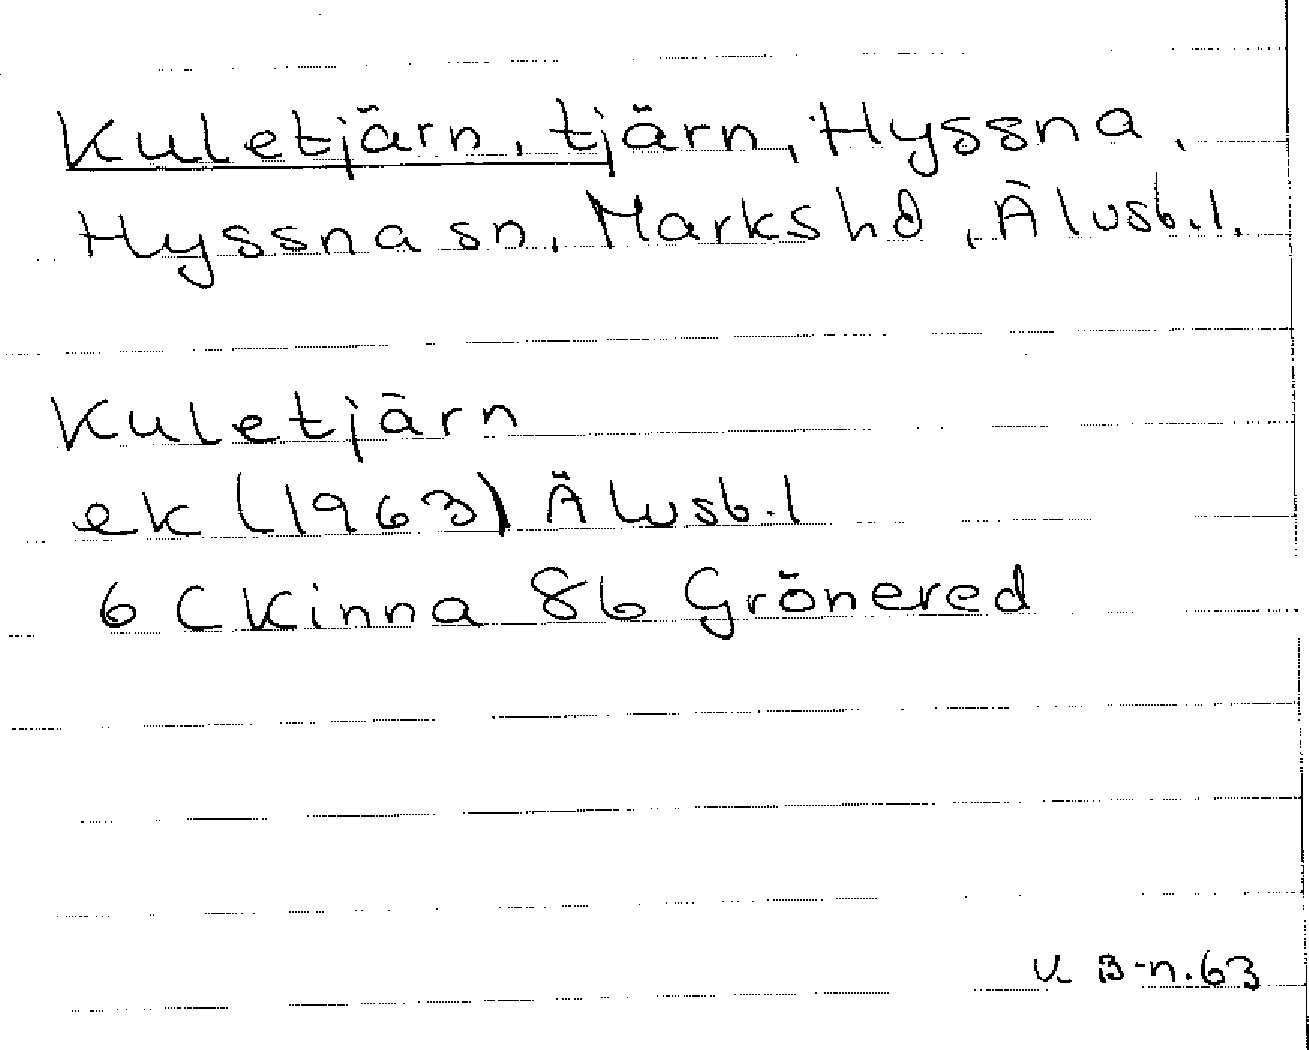 Kuletjärn, tjärn, Hyssna,
Hyssna sn, Marks hd, Älvsb.l.
Kuletjärn
ek (1963) Älvsb.l
6 C Kinna 8b Grönered
K B-n.63